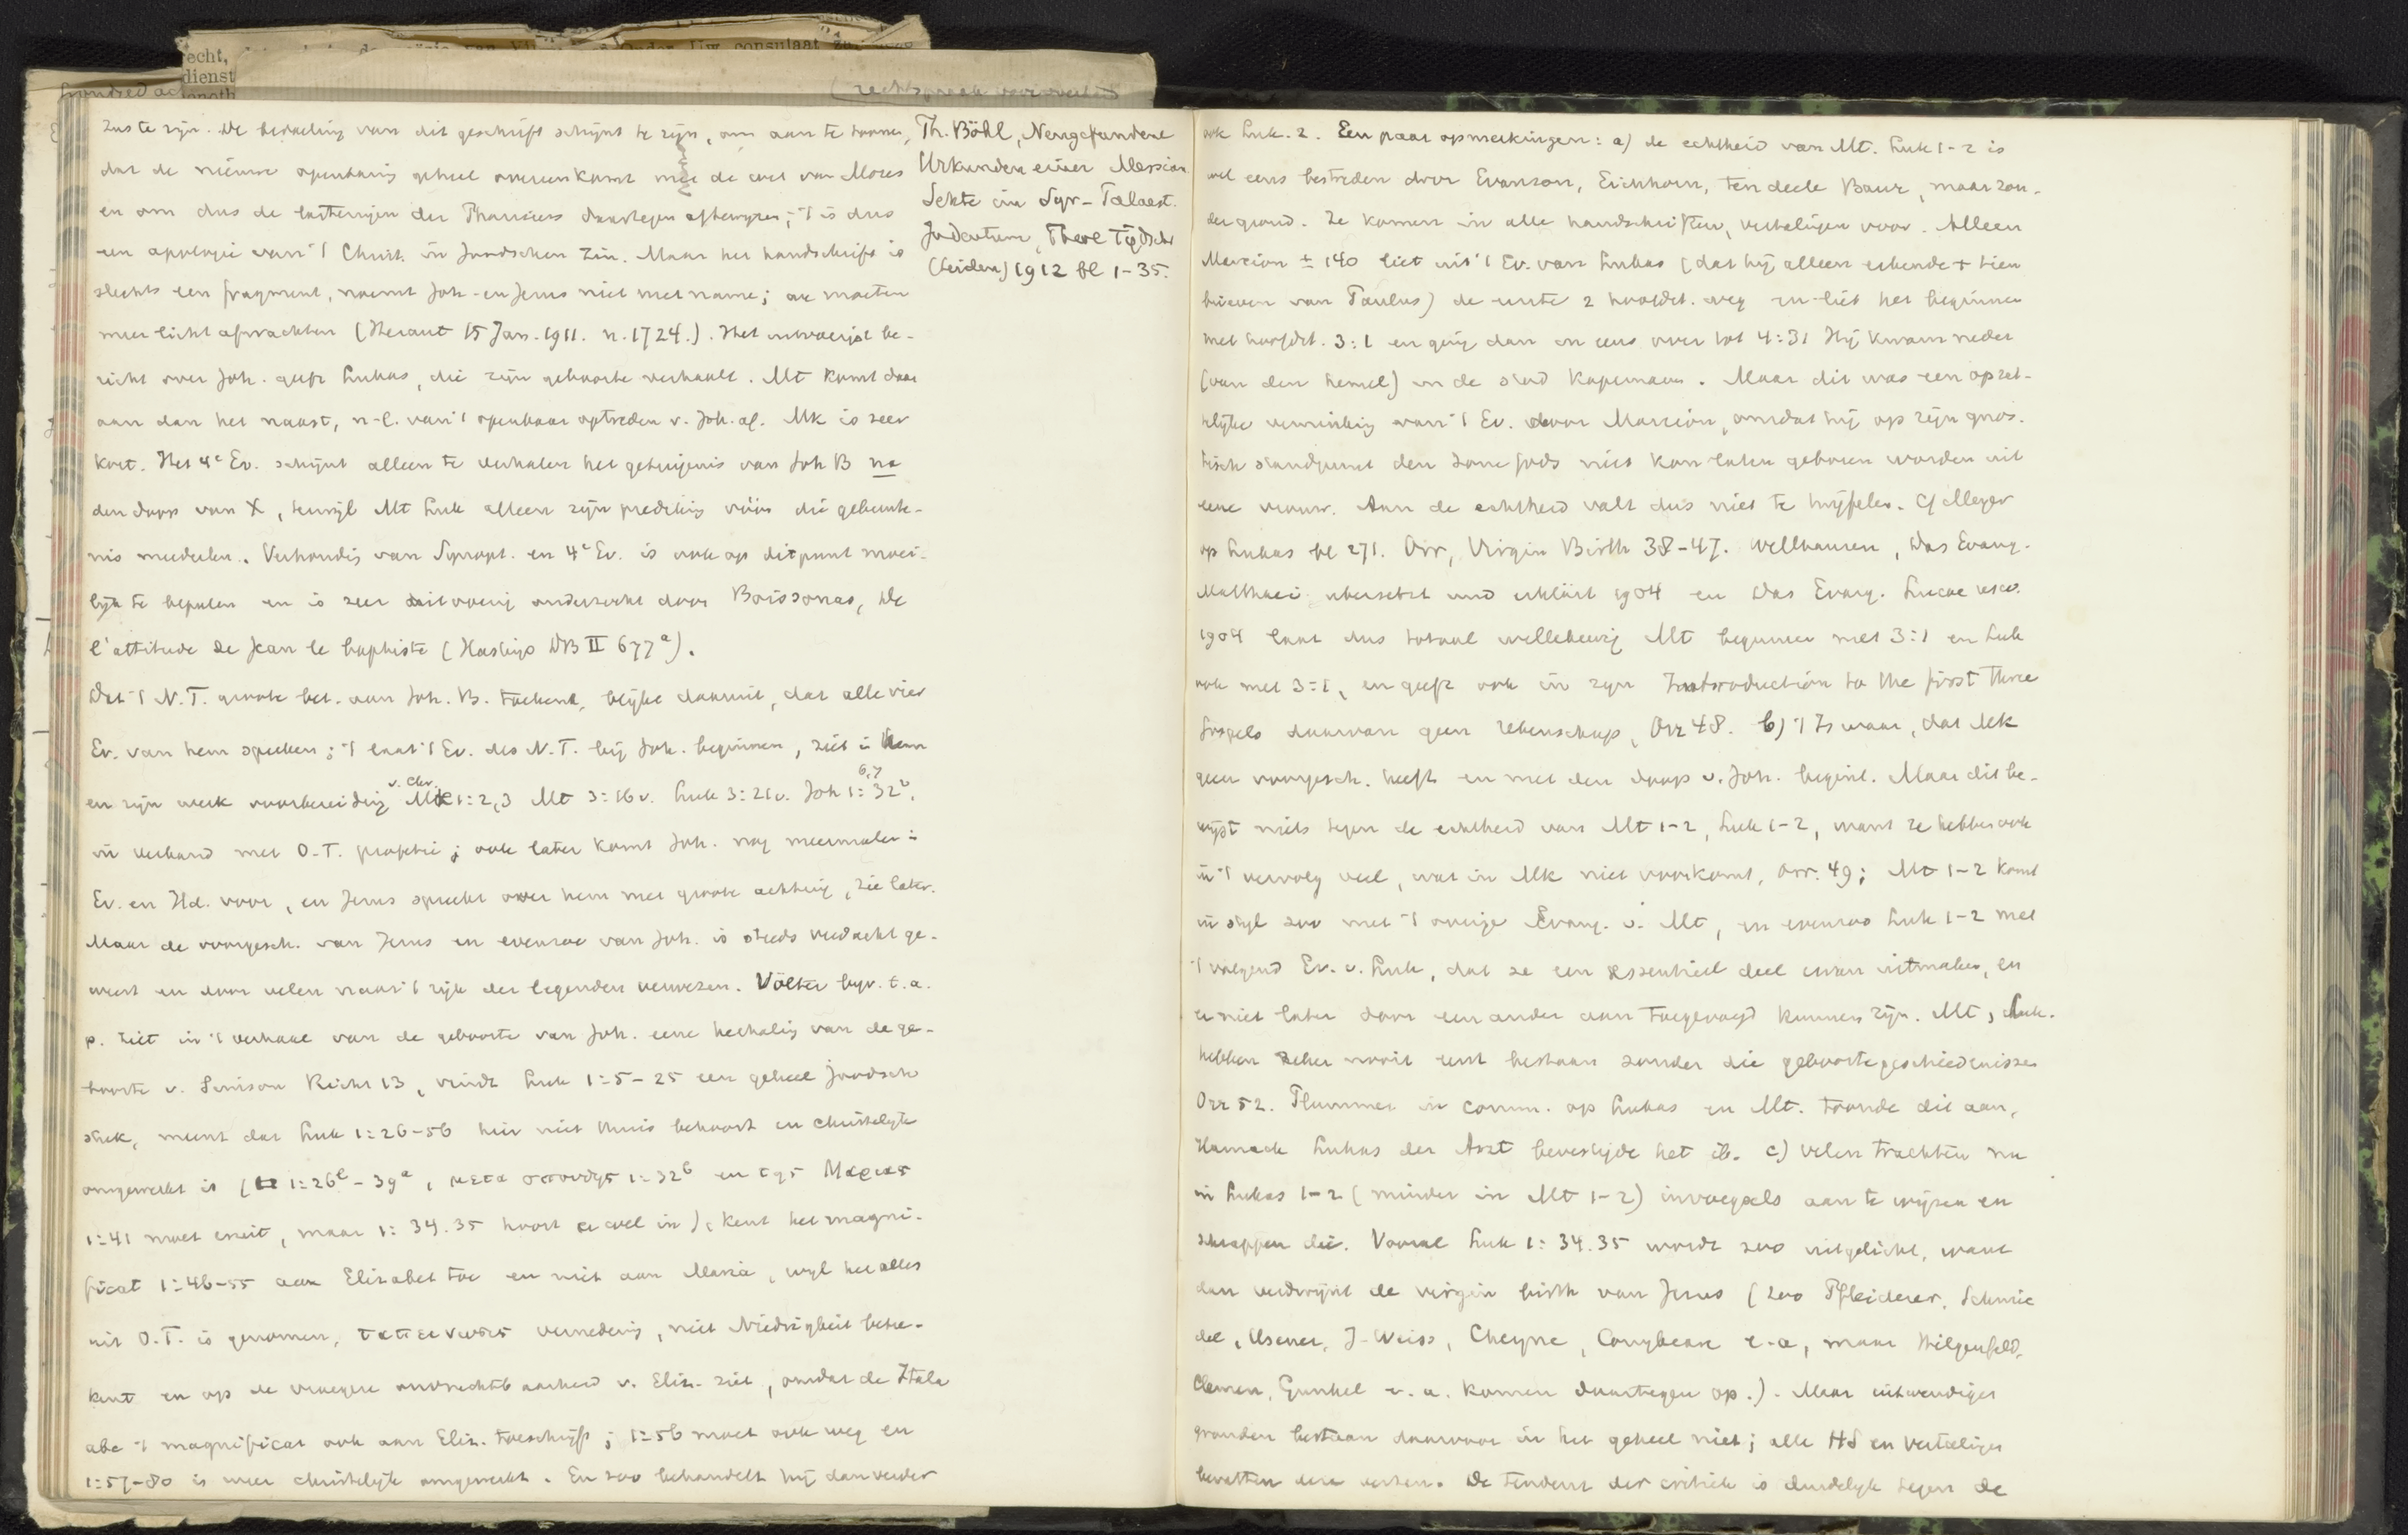 recht,
dienst
zus te zijn. De bedoeling van dit geschrift schijnt te zijn, om aan te toonen,
dat de nieuwe openbaring geheel overeenkomt met de wet van Mozes
en om dus de lasteringen der Pharizeers daartegen aftewijzen; 't is dus
een apologie van 't Christ. in Joodschen zin. Maar het handschrift is
slechts een fragment, noemt Joh. en Jezus niet met name; we moeten
meer licht afwachten (Heraut 15 Jan. 1911. n. 1724.). Het uitvoerigst be-
richt over Joh. geeft Lukas, die zijn geboorte verhaalt. Mt komt daar
aan dan het naast, n.l. van 't openbaar optreden v. Joh. af. Mk is zeer
kort. Het 4e Ev. schijnt alleen te verhalen het getuigenis van Joh B na
den doop van X, terwijl Mt Luk alleen zijn prediking vóór die gebeurte-
nis meedeelen. Verhouding van Synopt. en 4e Ev. is ook op dit punt moei-
lijk te bepalen en is zeer uitvoerig onderzocht door Boissonas, De
l'attitude de Jean le baptiste (Hastings DB II 677a).
Dat 't N.T. groote bet. aan Joh. B. toekent, blijkt daaruit, dat alle vier
Ev. van hem spreken; 't laat 't Ev. des N.T. bij Joh. beginnen, ziet in hem
en zijn werk voorbereiding v. Chr. Mk 1:2,3 Mt 3:16v. Luk 3:21v. Joh 1: 6,7 32v.
in verband met O.T. profetie; ook later komt Joh. nog meermalen in
Ev. en Hd. voor, en Jezus spreekt over hem met groote achting, zie later.
Maar de voorgesch. van Jezus en evenzoo van Joh. is steeds verdacht ge-
weest en door velen naar 't rijk der legenden verwezen. Völter bijv. t.a.
p. ziet in 't verhaal van de geboorte van Joh. eene herhaling van de ge-
boorte v. Simson Richt 13, vindt Luk 1:5-25 een geheel joodsch
stuk, meent dat Luk 1:26-56 hier niet thuis behoort en christelijk
omgewerkt is (1:26b-39a, μετα σπουδης 1:32b en της Μαριας
1:41 moet eruit, maar 1:34.35 hoort er wel in), kent het magni-
ficat 1:46-55 aan Elizabet toe en niet aan Maria, wijl het alles
uit O.T. is genomen, ταπεινωσις vernedering, niet Niedrigkeit betee-
kent en op de vroegere onvruchtbaarheid v. Eliz. ziet, omdat de Itala
abc 't magnificat ook aan Eliz. toeschrijft; 1:56 moet ook weg en
1:57-80 is weer christelijk omgewerkt. En zoo behandelt hij dan verder
Th. Böhl, Neugefundene
Urkunden einer Messian.
Sekte im Syr-Palaest.
Judentum, Theol Tijdschr
(Leiden) 1912 bl 1-35.
ook Luk. 2. Een paar opmerkingen: a) de echtheid van Mt. Luk 1-2 is
wel eens bestreden door Evanson, Eichhorn, ten deele Baur, maar zon-
der grond. Ze komen in alle handschriften, vertalingen voor. Alleen
Marcion ± 140 liet uit 't Ev. van Lukas (dat hij alleen erkende + tien
brieven van Paulus) de eerste 2 hoofdst. weg en liet het beginnen
met hoofdst. 3:1 en ging dan in eens over tot 4:31 Hij kwam neder
(van den hemel) in de stad Kapernaum. Maar dit was een opzet-
telijke verminking van 't Ev. door Marcion, omdat hij op zijn gnos-
tisch standpunt den Zone Gods niet kon laten geboren worden uit
eene vrouw. Aan de echtheid valt dus niet te twijfelen. Cf Meyer
op Lukas bl 271. Orr, Virgin Birth 38-47. Wellhausen, Das Evang.
Matthaei übersetzt und erklärt 1904 en Das Evang. Lucae
1904 laat dus totaal willekeurig Mt beginnen met 3:1 en Luk
ook met 3:1, en geeft ook in zijn Introduction to the first three
Gospels daarvan geen rekenschap, Orr 48. b) 't Is waar, dat Mk
geen voorgesch. heeft en met den doop v. Joh. begint. Maar dit be-
wijst niets tegen de echtheid van Mt 1-2, Luk 1-2, want ze hebben ook
in 't vervolg veel, wat in Mk niet voorkomt, Orr. 49; Mt 1-2 komt
in stijl zoo met 't overige Evang. v. Mt, en evenzoo Luk 1-2 met
't volgend Ev. v. Luk, dat ze een essentieel deel ervan uitmaken, en
er niet later door een ander aan toegevoegd kunnen zijn. Mt, Luk.
hebben zeker nooit eerst bestaan zonder die geboortegeschiedenissen
Orr 52. Plummer in comm. op Lukas en Mt. toonde dit aan,
Harnack Lukas der Arzt bevestigde het ib. c) Velen trachten nu
in Lukas 1-2 (minder in Mt 1-2) invoegsels aan te wijzen en
schrappen die. Vooral Luk 1:34.35 wordt zoo uitgelicht, want
dan verdwijnt de virgin birth van Jezus (zoo Pfleiderer, Schmie-
del, Usener, J. Weiss, Cheyne, Conybeare e.a., maar Hilgenfeld,
Clemen, Gunkel e.a. komen daartegen op.). Maar uitwendige
gronden bestaan daarvoor in het geheel niet; alle HS en vertalingen
bevatten deze verzen. De tendenz der critiek is duidelijk tegen de